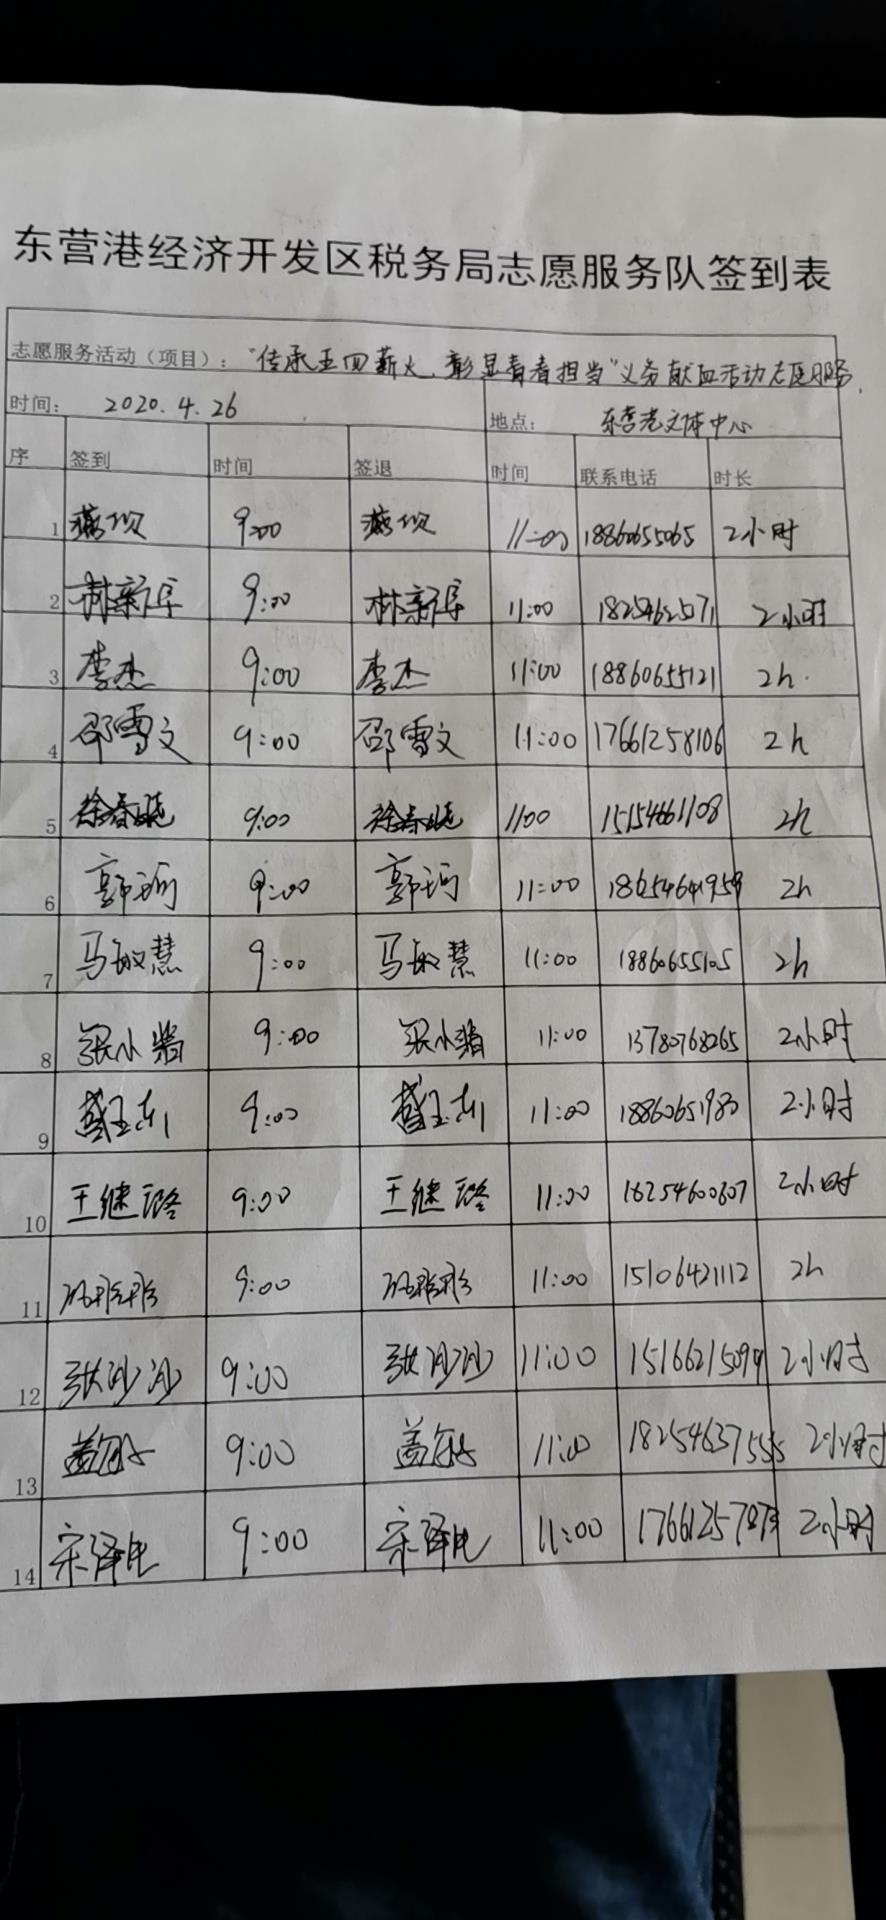 东营港经济开发区税务局志愿服务队签到表
志愿服务活动（项目）："传承五四薪火、彰显青春担当"义务献血活动志愿服务
时间： 2020.4.26 地点： 东营港文体中心
序 签到 时间 签退 时间 联系电话 时长
1 9:00 11:00 18860655065 2小时
2 林新阜 9:00 林新阜 11:00 1825462571 2小时
3 李杰 9:00 李杰 11:00 18860655121 2h.
4 邵雪文 9:00 邵雪文 11:00 17661258106 2h
5 徐春晓 9:00 徐春晓 11:00 15154661108 2h
6 郭珂 9:00 郭珂 11:00 18654641959 2h
7 马敏慧 9:00 马敏慧 11:00 18860655105 2h
8 张小 9:00 张小 11:00 13780768265 2小时
9 9:00 11:00 18860651983 2小时
10 王继璐 9:00 王继璐 11:00 18254600607 2小时
11 9:00 11:00 15106421112 2h
12 张沙沙 9:00 张沙沙 11:00 15166215099 2小时
13 9:00 11:00 18254637555 2小时
14 宋泽民 9:00 宋泽民 11:00 2小时